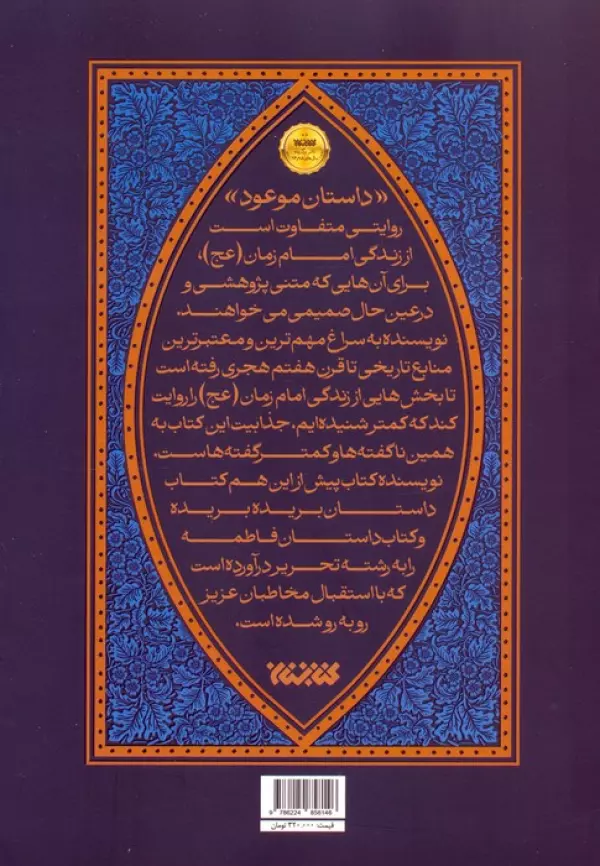 «داستان موعود»
روایتی متفاوت است
از زندگی امام زمان (عج)،
برای آن‌هایی که متنی پژوهشی و
در عین حال صمیمی می‌خواهند.
نویسنده به سراغ مهم‌ترین و معتبرترین
منابع تاریخی تا قرن هفتم هجری رفته است
تا بخش‌هایی از زندگی امام زمان (عج) را روایت
کند که کمتر شنیده‌ایم. جذابیت این کتاب به
همین ناگفته‌ها و کمتر گفته‌هاست.
نویسنده کتاب پیش از این هم کتاب
داستان بریده بریده
و کتاب داستان فاطمه
را به رشته تحریر درآورده است
که با استقبال مخاطبان عزیز
روبه‌رو شده است.
9 786224 856146
قیمت: ۳۲۰,۰۰۰ تومان